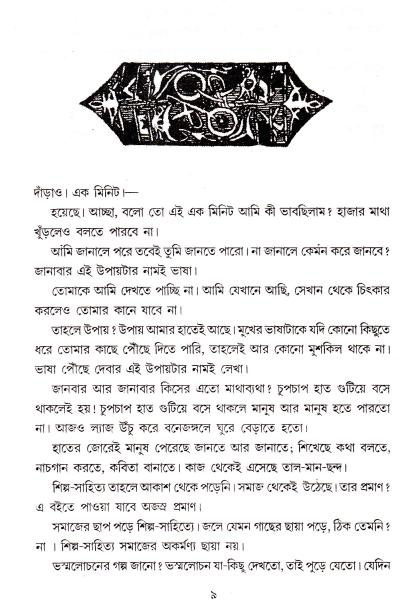 দাঁড়াও। এক মিনিট।—
হয়েছে। আচ্ছা, বলো তো এই এক মিনিট আমি কী ভাবছিলাম? হাজার মাথা
খুঁড়লেও বলতে পারবে না।
আমি জানালে পরে তবেই তুমি জানতে পারো। না জানালে কেমন করে জানবে?
জানাবার এই উপায়টার নামই ভাষা।
তোমাকে আমি দেখতে পাচ্ছি না। আমি যেখানে আছি, সেখান থেকে চিৎকার
করলেও তোমার কানে যাবে না।
তাহলে উপায়? উপায় আমার হাতেই আছে। মুখের ভাষাটাকে যদি কোনো কিছুতে
ধরে তোমার কাছে পৌঁছে দিতে পারি, তাহলেই আর কোনো মুশকিল থাকে না।
ভাষা পৌঁছে দেবার এই উপায়টার নামই লেখা।
জানবার আর জানাবার কিসের এতো মাথাব্যথা? চুপচাপ হাত গুটিয়ে বসে
থাকলেই হয়! চুপচাপ হাত গুটিয়ে বসে থাকলে মানুষ আর মানুষ হতে পারতো
না। আজও ল্যাজ উঁচু করে বনেজঙ্গলে ঘুরে বেড়াতে হতো।
হাতের জোরেই মানুষ পেরেছে জানতে আর জানাতে; শিখেছে কথা বলতে,
নাচগান করতে, কবিতা বানাতে। কাজ থেকেই এসেছে তাল-মান-ছন্দ।
শিল্প-সাহিত্য তাহলে আকাশ থেকে পড়েনি। সমাজ থেকেই উঠেছে। তার প্রমাণ?
এ বইতে পাওয়া যাবে অজস্র প্রমাণ।
সমাজের ছাপ পড়ে শিল্প-সাহিত্যে। জলে যেমন গাছের ছায়া পড়ে, ঠিক তেমনি?
না । শিল্প-সাহিত্য সমাজের অকর্মণ্য ছায়া নয়।
ভস্মলোচনের গল্প জানো? ভস্মলোচন যা-কিছু দেখতো, তাই পুড়ে যেতো। যেদিন
৯